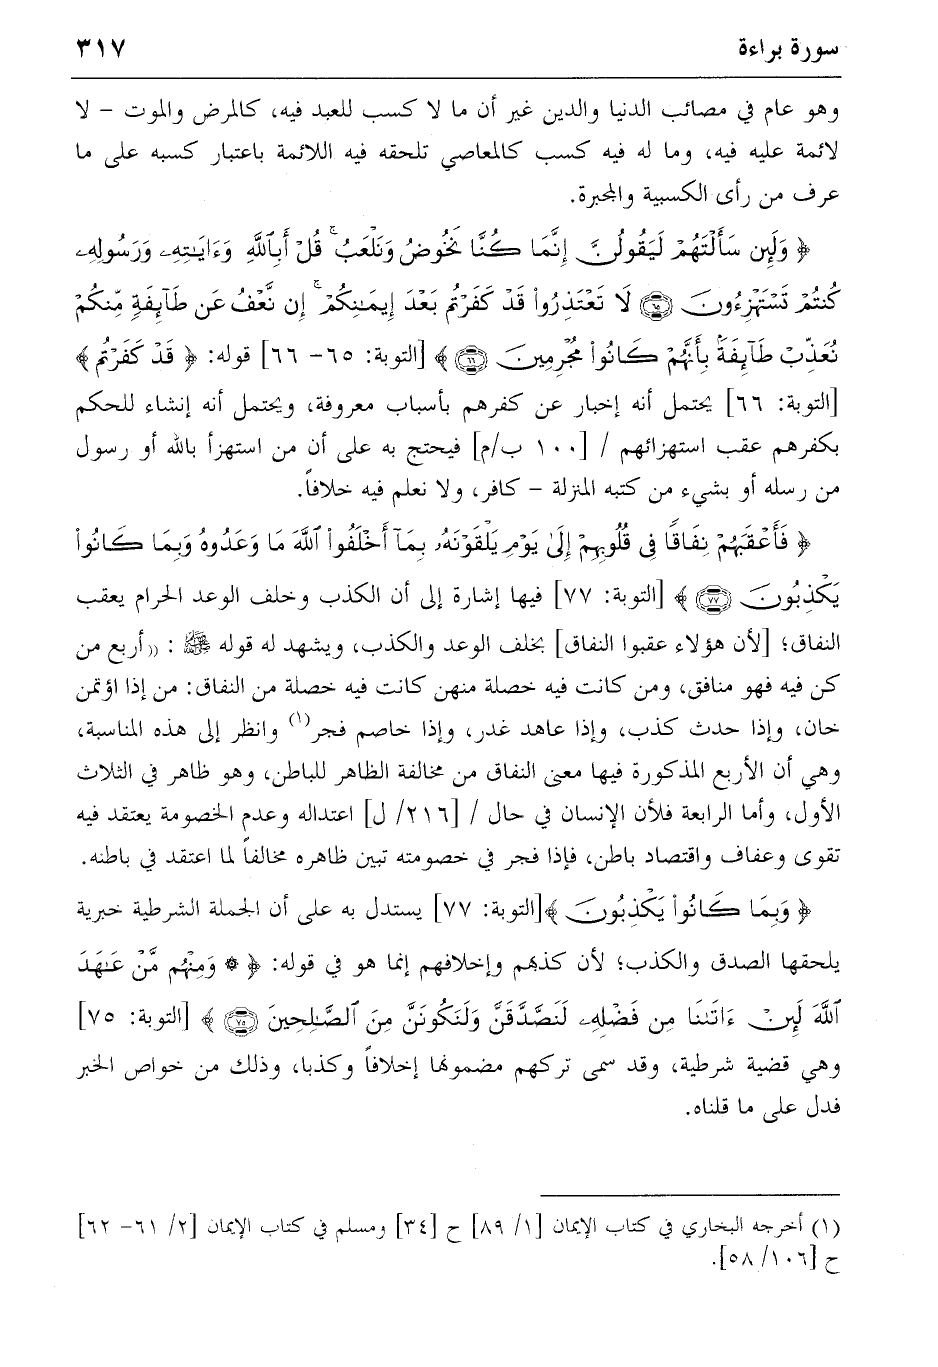 سورة براءة ٣١٧
وهو عام في مصائب الدنيا والدين غير أن ما لا كسب للعبد فيه، كالمرض والموت – لا
لائمة عليه فيه، وما له فيه كسب كالمعاصي تلحقه فيه اللائمة باعتبار كسبه على ما
عرف من رأى الكسبية والمجبرة.
﴿ وَلَئِن سَأَلْتَهُمْ لَيَقُولُنَّ إِنَّمَا كُنَّا نَخُوضُ وَنَلْعَبُ ۚ قُلْ أَبِٱللَّهِ وَءَايَـٰتِهِۦ وَرَسُولِهِۦ
كُنتُمْ تَسْتَهْزِءُونَ ۝٦٥ لَا تَعْتَذِرُوا۟ قَدْ كَفَرْتُم بَعْدَ إِيمَـٰنِكُمْ ۚ إِن نَّعْفُ عَن طَآئِفَةٍ مِّنكُمْ
نُعَذِّبْ طَآئِفَةًۢ بِأَنَّهُمْ كَانُوا۟ مُجْرِمِينَ ۝٦٦ ﴾ [التوبة: ٦٥- ٦٦] قوله: ﴿ قَدْ كَفَرْتُم ﴾
[التوبة: ٦٦] يحتمل أنه إخبار عن كفرهم بأسباب معروفة، ويحتمل أنه إنشاء للحكم
بكفرهم عقب استهزائهم / [١٠٠ ب/م] فيحتج به على أن من استهزأ بالله أو رسول
من رسله أو بشيء من كتبه المنزلة – كافر، ولا نعلم فيه خلافاً.
﴿ فَأَعْقَبَهُمْ نِفَاقًا فِى قُلُوبِهِمْ إِلَىٰ يَوْمِ يَلْقَوْنَهُۥ بِمَآ أَخْلَفُوا۟ ٱللَّهَ مَا وَعَدُوهُ وَبِمَا كَانُوا۟
يَكْذِبُونَ ۝٧٧ ﴾ [التوبة: ٧٧] فيها إشارة إلى أن الكذب وخلف الوعد الحرام يعقب
النفاق؛ [لأن هؤلاء عقبوا النفاق] بخلف الوعد والكذب، ويشهد له قوله ﷺ : ((أربع من
كن فيه فهو منافق، ومن كانت فيه خصلة منهن كانت فيه خصلة من النفاق: من إذا اؤتمن
خان، وإذا حدث كذب، وإذا عاهد غدر، وإذا خاصم فجر(١) وانظر إلى هذه المناسبة،
وهي أن الأربع المذكورة فيها معنى النفاق من مخالفة الظاهر للباطن، وهو ظاهر في الثلاث
الأول، وأما الرابعة فلأن الإنسان في حال / [٢١٦/ ل] اعتداله وعدم الخصومة يعتقد فيه
تقوى وعفاف واقتصاد باطن، فإذا فجر في خصومته تبين ظاهره مخالفاً لما اعتقد في باطنه.
﴿ وَبِمَا كَانُوا۟ يَكْذِبُونَ ﴾[التوبة: ٧٧] يستدل به على أن الجملة الشرطية خبرية
يلحقها الصدق والكذب؛ لأن كذبهم وإخلافهم إنما هو في قوله: ﴿ ۞ وَمِنْهُم مَّنْ عَـٰهَدَ
ٱللَّهَ لَئِنْ ءَاتَىٰنَا مِن فَضْلِهِۦ لَنَصَّدَّقَنَّ وَلَنَكُونَنَّ مِنَ ٱلصَّـٰلِحِينَ ۝٧٥ ﴾ [التوبة: ٧٥]
وهي قضية شرطية، وقد سمى تركهم مضمونها إخلافاً وكذبا، وذلك من خواص الخبر
فدل على ما قلناه.
(١) أخرجه البخاري في كتاب الإيمان [١/ ٨٩] ح [٣٤] ومسلم في كتاب الإيمان [٢/ ٦١- ٦٢]
ح [١٠٦/ ٥٨].